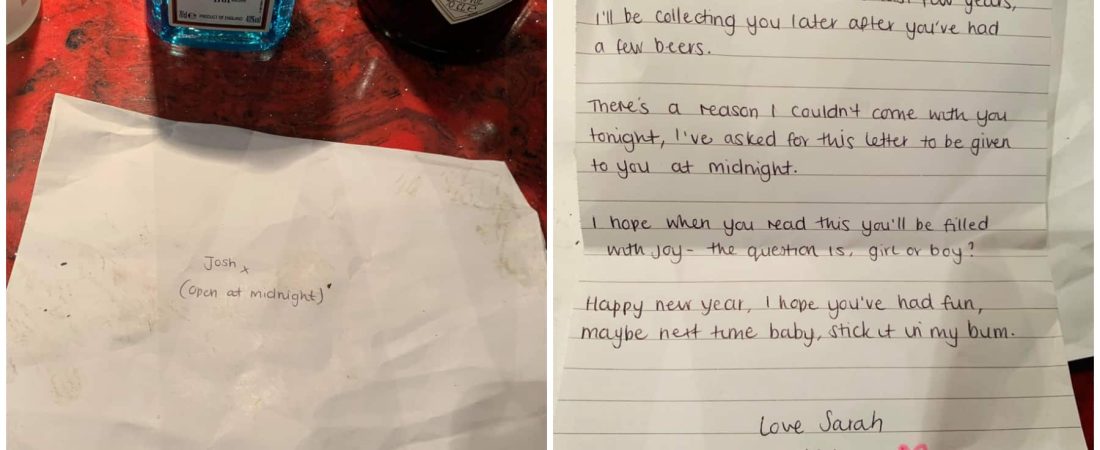 PRODUCT OF ENGLAND
Josh x
(open at midnight)
years,
I'll be collecting you later after you've had
a few beers.
There's a reason I couldn't come with you
tonight, I've asked for this letter to be given
to you at midnight.
I hope when you read this you'll be filled
with joy - the question is, girl or boy?
Happy new year, I hope you've had fun,
maybe next time baby, stick it in my bum.
Love Sarah